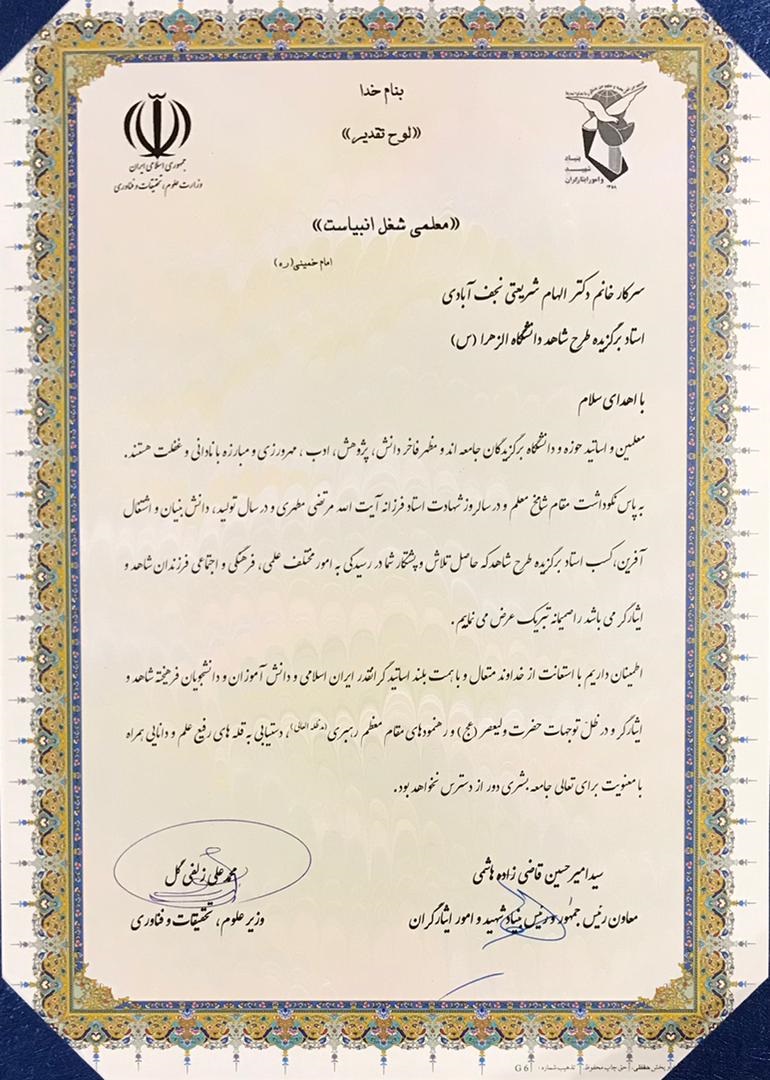 بنام خدا
«لوح تقدیر»
جمهوری اسلامی ایران
وزارت علوم، تحقیقات و فناوری
بنیاد
شهید
و امور ایثارگران
۱۳۵۸
«معلمی شغل انبیاست»
امام خمینی(ره)
سرکار خانم دکتر الهام شریعتی نجف آبادی
استاد برگزیده طرح شاهد دانشگاه الزهرا (س)
با اهدای سلام
معلمین و اساتید حوزه و دانشگاه برگزیدگان جامعه اند و مظهر فاخر دانش، پژوهش، ادب، مهرورزی و مبارزه با نادانی و غفلت هستند.
به پاس نکوداشت مقام شامخ معلم و در سالروز شهادت استاد فرزانه آیت الله مرتضی مطهری و در سال تولید، دانش بنیان و اشتغال
آفرین، کسب استاد برگزیده طرح شاهد که حاصل تلاش و پشتکار شما در رسیدگی به امور مختلف علمی، فرهنگی و اجتماعی فرزندان شاهد و
ایثارگر می باشد را صمیمانه تبریک عرض می نماییم.
اطمینان داریم با استعانت از خداوند متعال و با همت بلند اساتید گرانقدر ایران اسلامی و دانش آموزان و دانشجویان فرهیخته شاهد و
ایثارگر و در ظلّ توجهات حضرت ولیعصر (عج) و رهنمودهای مقام معظم رهبری (مدظله العالی)، دستیابی به قله های رفیع علم و دانایی همراه
با معنویت برای تعالی جامعه بشری دور از دسترس نخواهد بود.
سید امیرحسین قاضی زاده هاشمی
معاون رئیس جمهور و رئیس بنیاد شهید و امور ایثارگران
محمد علی زلفی گل
وزیر علوم، تحقیقات و فناوری
و پخش حققی. | حق چاپ محفوظ. تذهیب شماره: G 6